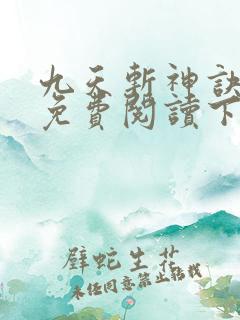 九天斬神訣
免費閱讀下
壁蛇生花
未经同意禁止转载